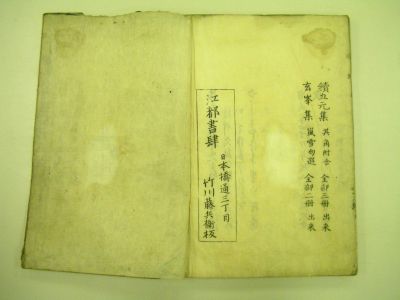 續五元集 其角附合 全部三冊 出来
玄峯集 嵐雪句選 全部二冊 出来
江都書肆
日本橋通三丁目
竹川藤兵衛板